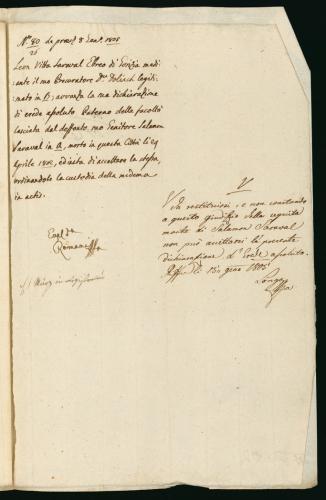 N.º 80 de præs. 8 Gen.º 1805
Leon Vitta Saraval Ebreo di Gorizia medi
ante il suo Procuratore D.r legiti
mato in B; avvanza la sua dichiarazione
di erede assoluto Paterno della facoltà
lasciata dal deffonto suo Genitore Salamon
Saraval in A, morto in questa Città li 29
Aprile 1802, ed insta di accettare la stessa,
ordinandole la custodia della medema
in actis.
V
In restituzioni, e non constando
a questo giudizio della seguita
morte di Salamon Saraval
non può accettarsi la presente
dichiarazione d'Erede assoluto.
li 15 gena 1805
Longo